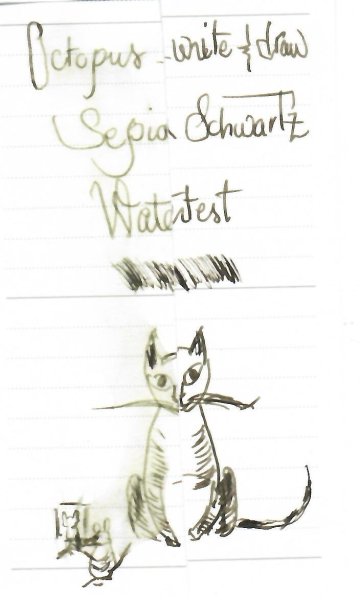 Octopus write & draw
Sepia Schwartz
Watertest